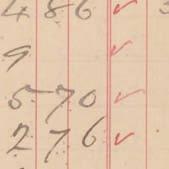 486 ✓
9 ✓
570 ✓
276 ✓